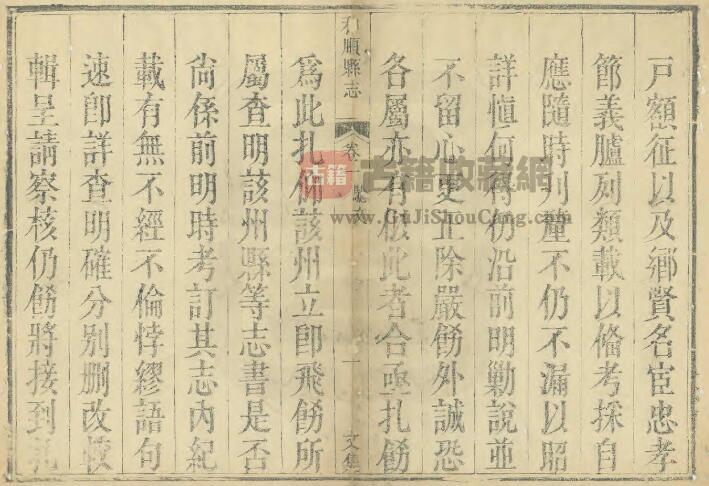 戸額征以及鄉賢名宦忠孝
節義臚列類載以俻考採自
應隨時刋不仍不漏以昭
詳慎何得仍沿前明勦說並
不留心更正除嚴飭外誠恐
各屬亦有似此者合亟扎飭
和順縣志 卷 一 文集
為此扎仰該州立卽飛飭所
屬查明該州縣等志書是否
尙係前明時考訂其志內紀
載有無不經不倫悖繆語句
速卽詳查明確分别刪改
輯呈請察核仍飭將接到
古籍 古籍收藏網
www.GuJiShouCang.com